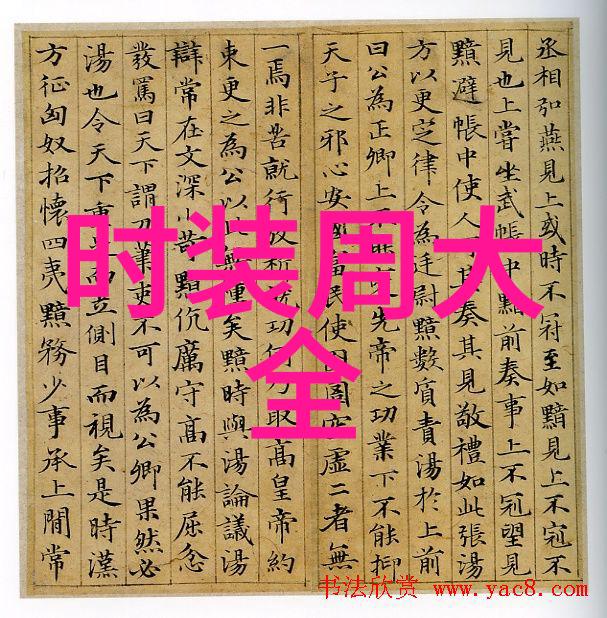 丞相弘燕見上或時不冠至如黯見上不冠不
見也上嘗坐武帳中黯前奏事上不冠望見
黯避帳中使人可其奏其見敬禮如此張湯
方以更芝律令為廷尉黯數質責湯於上前
曰公為正卿上不能褒先帝之功業下不能抑
天子之邪心安國富民使囹圄空虛二者無
一焉非苦就行放析就功何乃取高皇帝約
束更之為公以此無種矣黯時與湯論議湯
辯常在文深小苛黯伉厲守高不能屈忿
發罵曰天下謂刀筆吏不可以為公卿果然必
湯也令天下重足而立側目而視矣是時漢
方征匈奴招懷四夷黯務少事承上間常
时装周大
全
书法欣赏 www.yac8.com